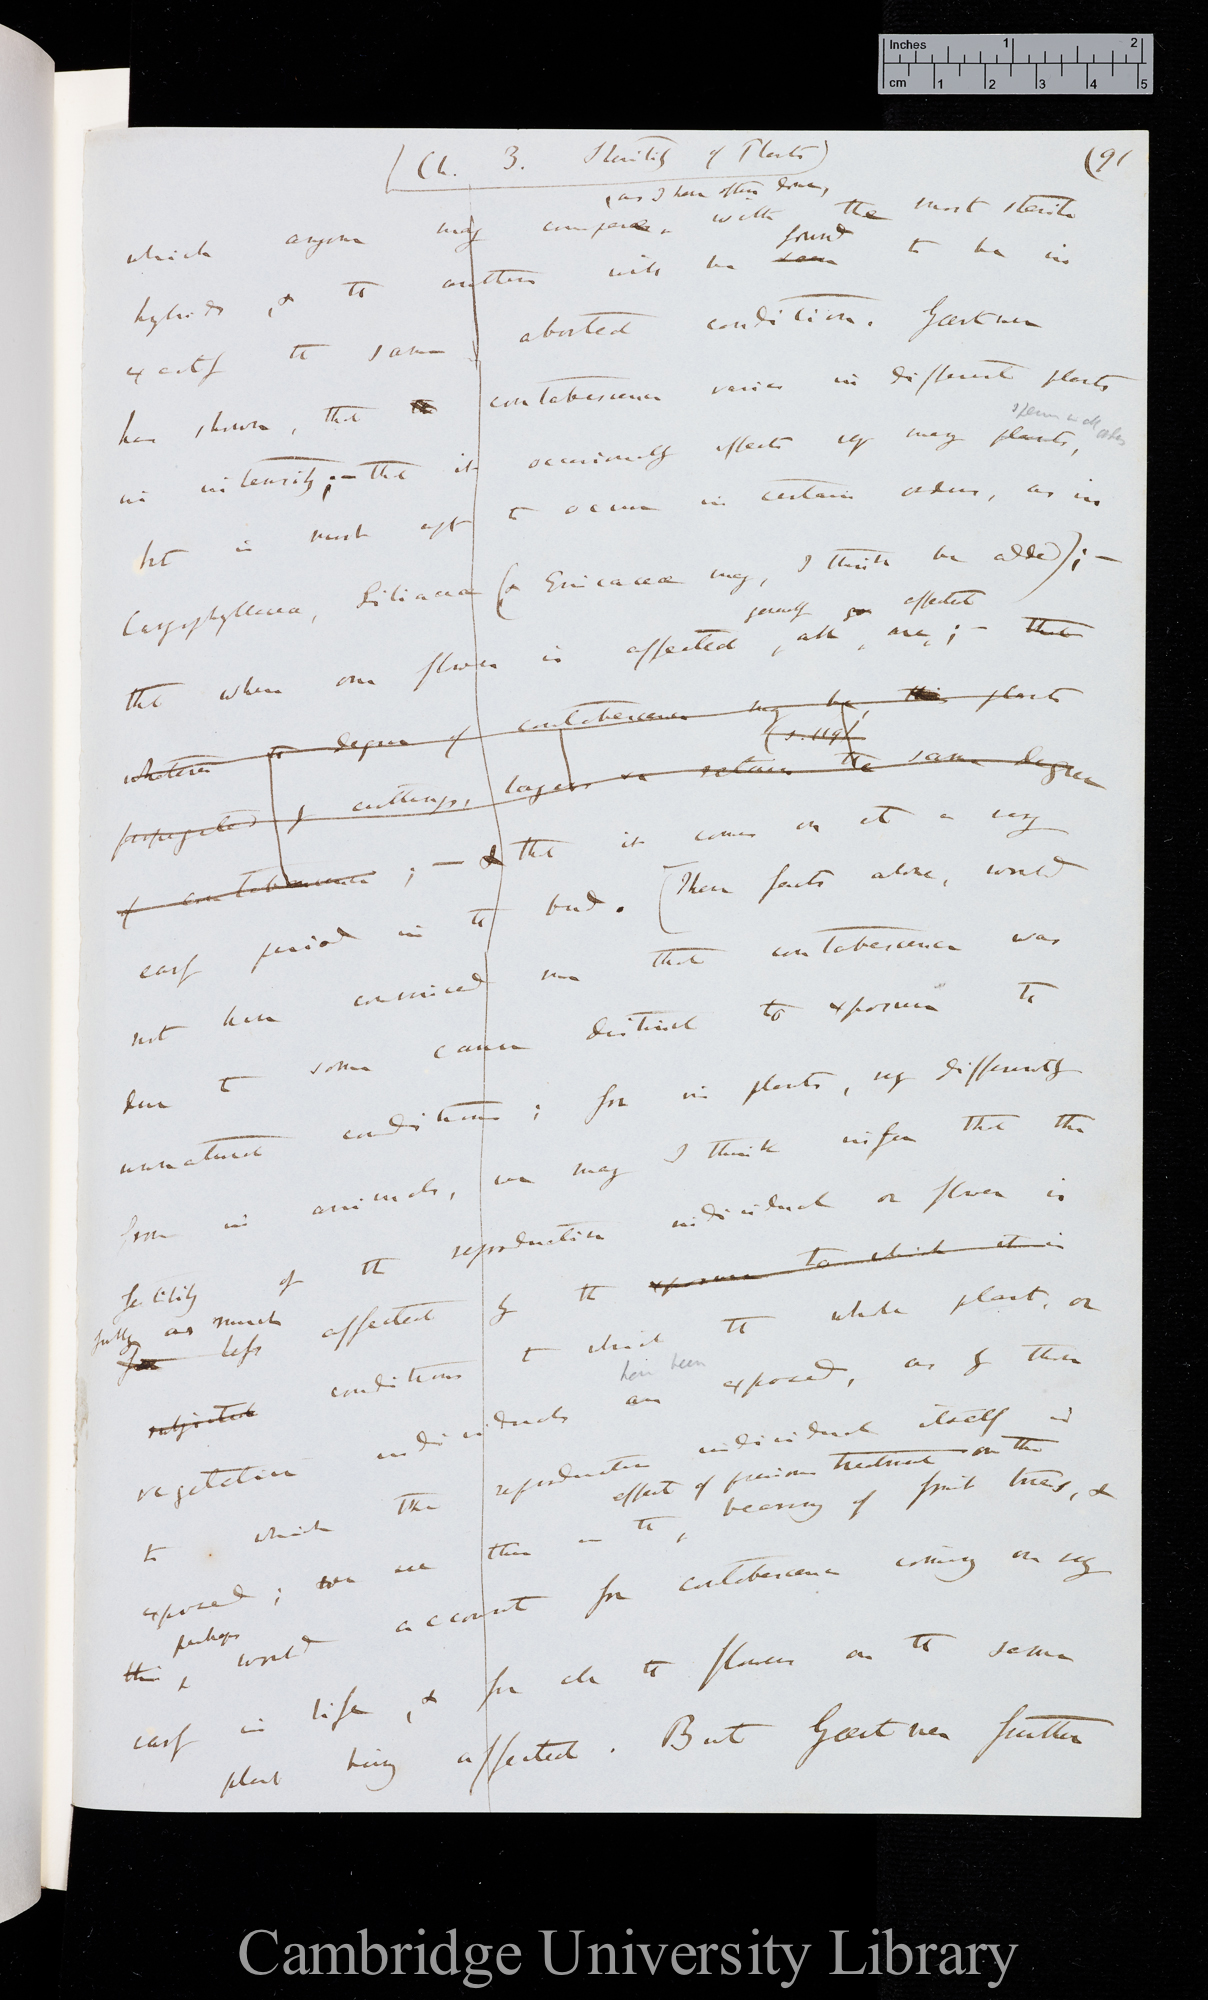 (Ch. 3. Sterility of Plants) (91
(as I have often done,
which anyone may compare, with the most sterile
found
hybrids, & the anthers will be seen to be in
exactly the same aborted condition. Gærtner
has shown, that contabescence varies in different plants
in intensity;— that it occasionally affects very many plants,
but is most apt to occur in certain orders, as in
Caryophyllaceæ, Liliaceæ (& Ericaceæ may, I think be added);—
generally affected
that when one flower is affected, all, are,;— that
whatever the degree of contabescence may be, this plants
(s. 119)
propagated by cuttings, layers &c retain the same degree
of contabescence;— & that it comes on at a very
early period in the bud. (These facts alone, would
not have convinced me that contabescence was
due to some cause distinct to exposure to
unnatural conditions; for in plants, very differently
from in animals, we may I think infer that the
fertility of the reproductive individual or flower is
fully as much
less affected by the exposure to which it is
subjected conditions to which the whole plant, or
have been
vegetative individuals are exposed, as by those
to which the reproductive individual itself is
effect of previous treatment on the
exposed; we see this in the, bearing of fruit trees, &
perhaps
this, would account for contabescence coming on very
early in life, & for all the flowers on the same
plant being affected. But Gærtner further
Inches 1 2
cm 1 2 3 4 5
Cambridge University Library